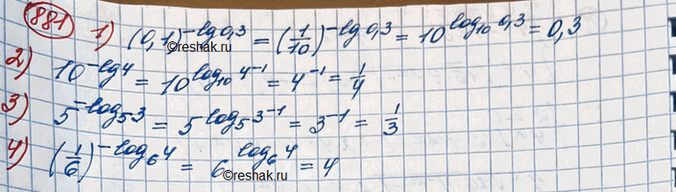 881 1) (0,1)^{-lg 0,3} = (1/10)^{-lg 0,3} = 10^{log₁₀ 0,3} = 0,3
©reshak.ru
2) 10^{-lg 4} = 10^{log₁₀ 4^{-1}} = 4^{-1} = 1/4
3) 5^{-log₅ 3} = 5^{log₅ 3^{-1}} = 3^{-1} = 1/3
4) (1/6)^{-log₆ 4} = 6^{log₆ 4} = 4
©reshak.ru